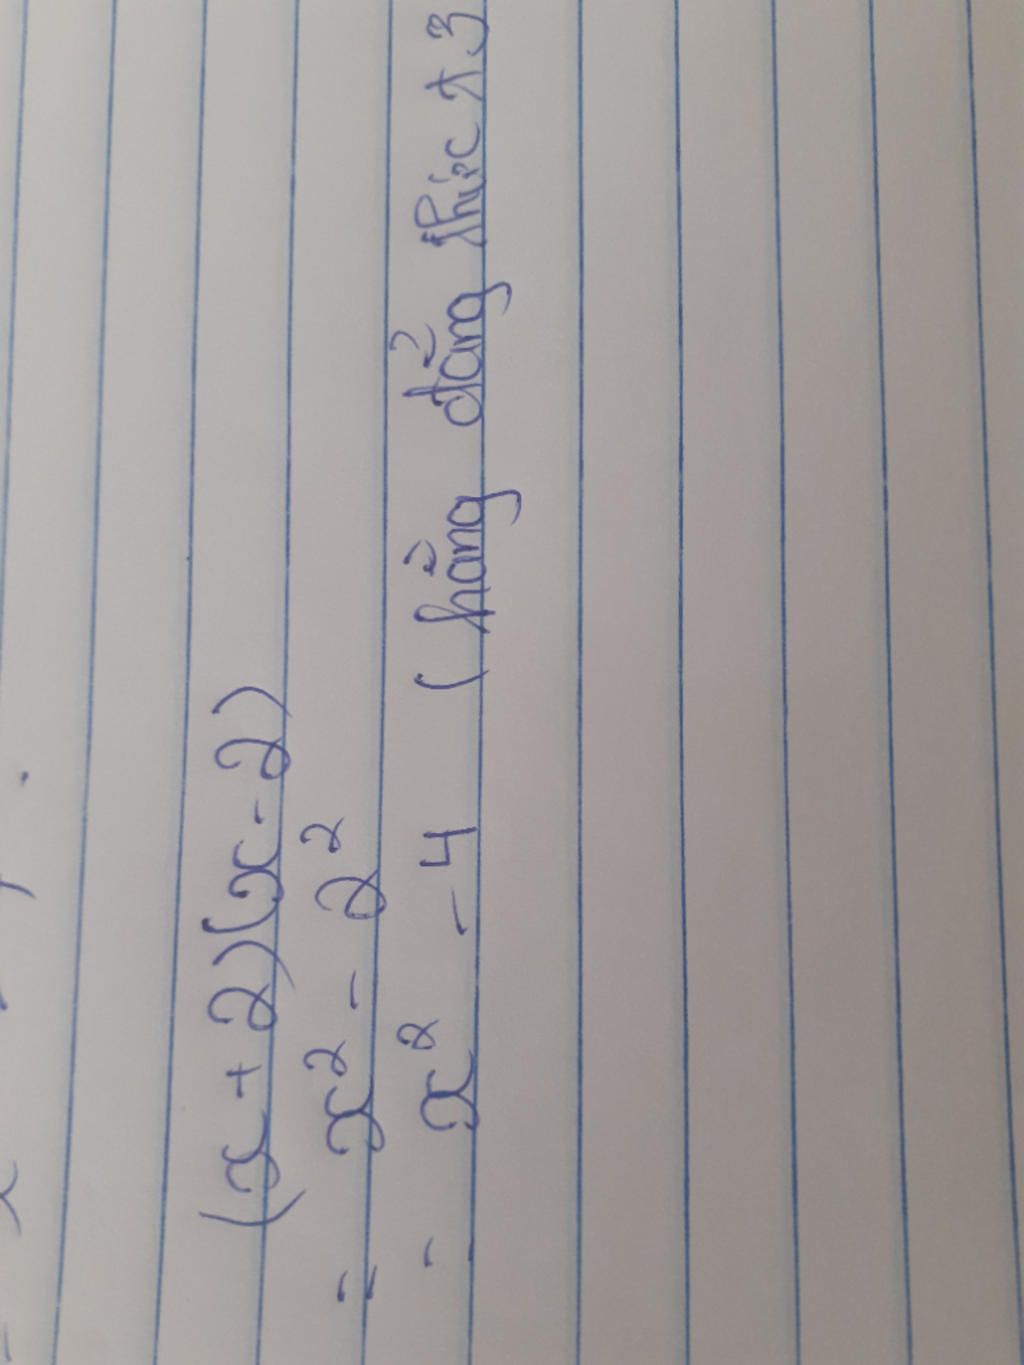 (x + 2)(x - 2)
= x² - 2²
= x² - 4 (hằng đẳng thức t.3